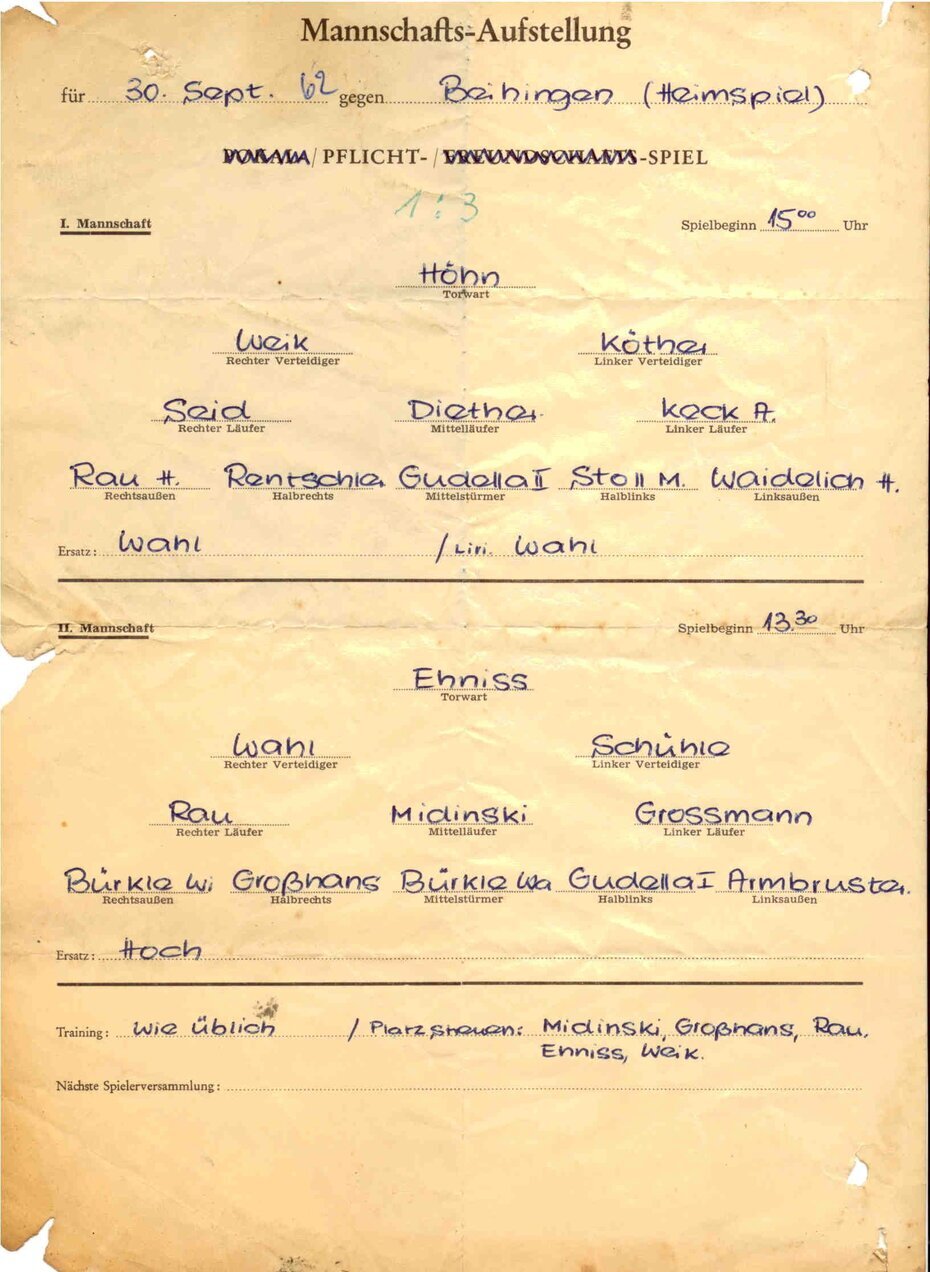 Mannschafts-Aufstellung
für 30. Sept. 62 gegen Beihingen (Heimspiel)
POKAL- / PFLICHT- / FREUNDSCHAFTS-SPIEL
1:3
I. Mannschaft Spielbeginn 15⁰⁰ Uhr
Höhn
Torwart
Weik Köther
Rechter Verteidiger Linker Verteidiger
Seid Diether Keck A.
Rechter Läufer Mittelläufer Linker Läufer
Rau H. Rentschler Gudella II Stoll M. Waidelich H.
Rechtsaußen Halbrechts Mittelstürmer Halblinks Linksaußen
Ersatz: Wahl / Liri. Wahl
II. Mannschaft Spielbeginn 13.³⁰ Uhr
Ehniss
Torwart
Wahl Schühle
Rechter Verteidiger Linker Verteidiger
Rau Midinski Grossmann
Rechter Läufer Mittelläufer Linker Läufer
Bürkle Wi Großhans Bürkle Wa Gudella I Armbruster.
Rechtsaußen Halbrechts Mittelstürmer Halblinks Linksaußen
Ersatz: Hoch
Training: wie üblich / Platz streuen: Midinski, Großhans, Rau.
Ehniss, Weik.
Nächste Spielerversammlung: